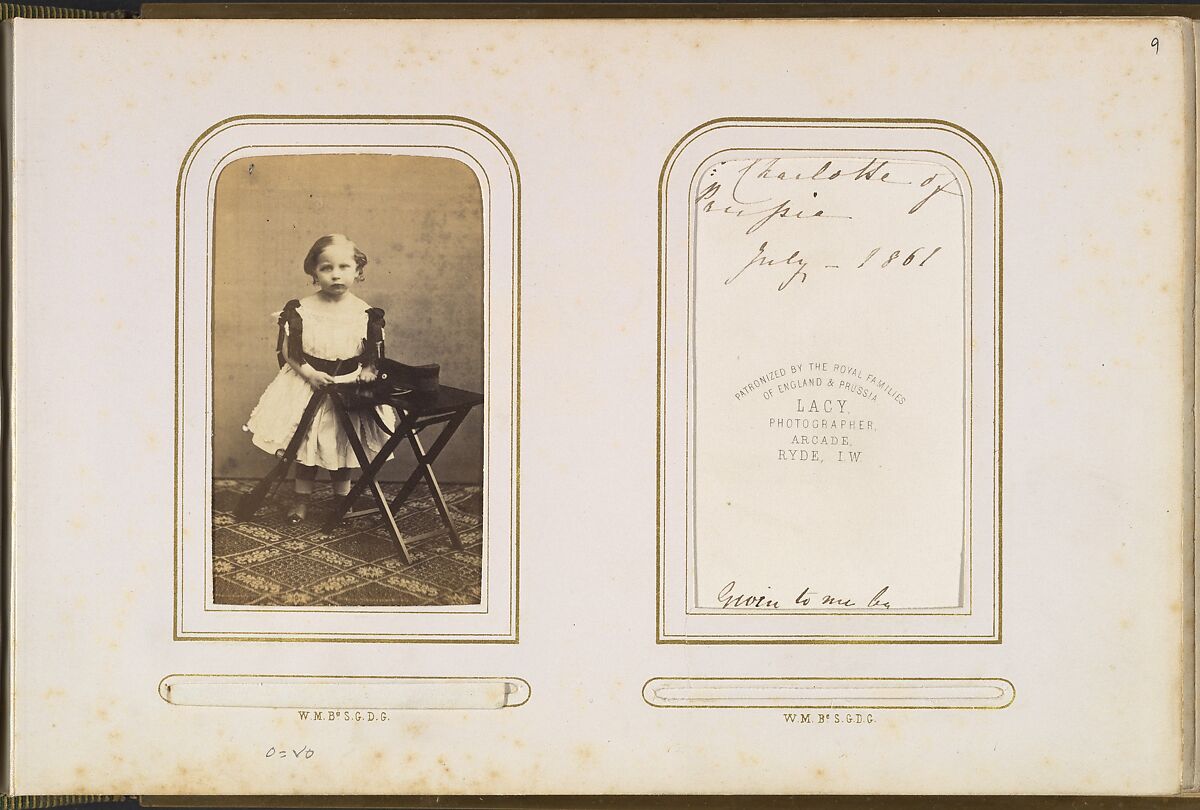 9
Charlotte of
Prussia
July - 1861
PATRONIZED BY THE ROYAL FAMILIES
OF ENGLAND & PRUSSIA
LACY,
PHOTOGRAPHER,
ARCADE,
RYDE, I.W.
Given to me by
W.M. Bᵉ S.G.D.G.
W.M. Bᵉ S.G.D.G.